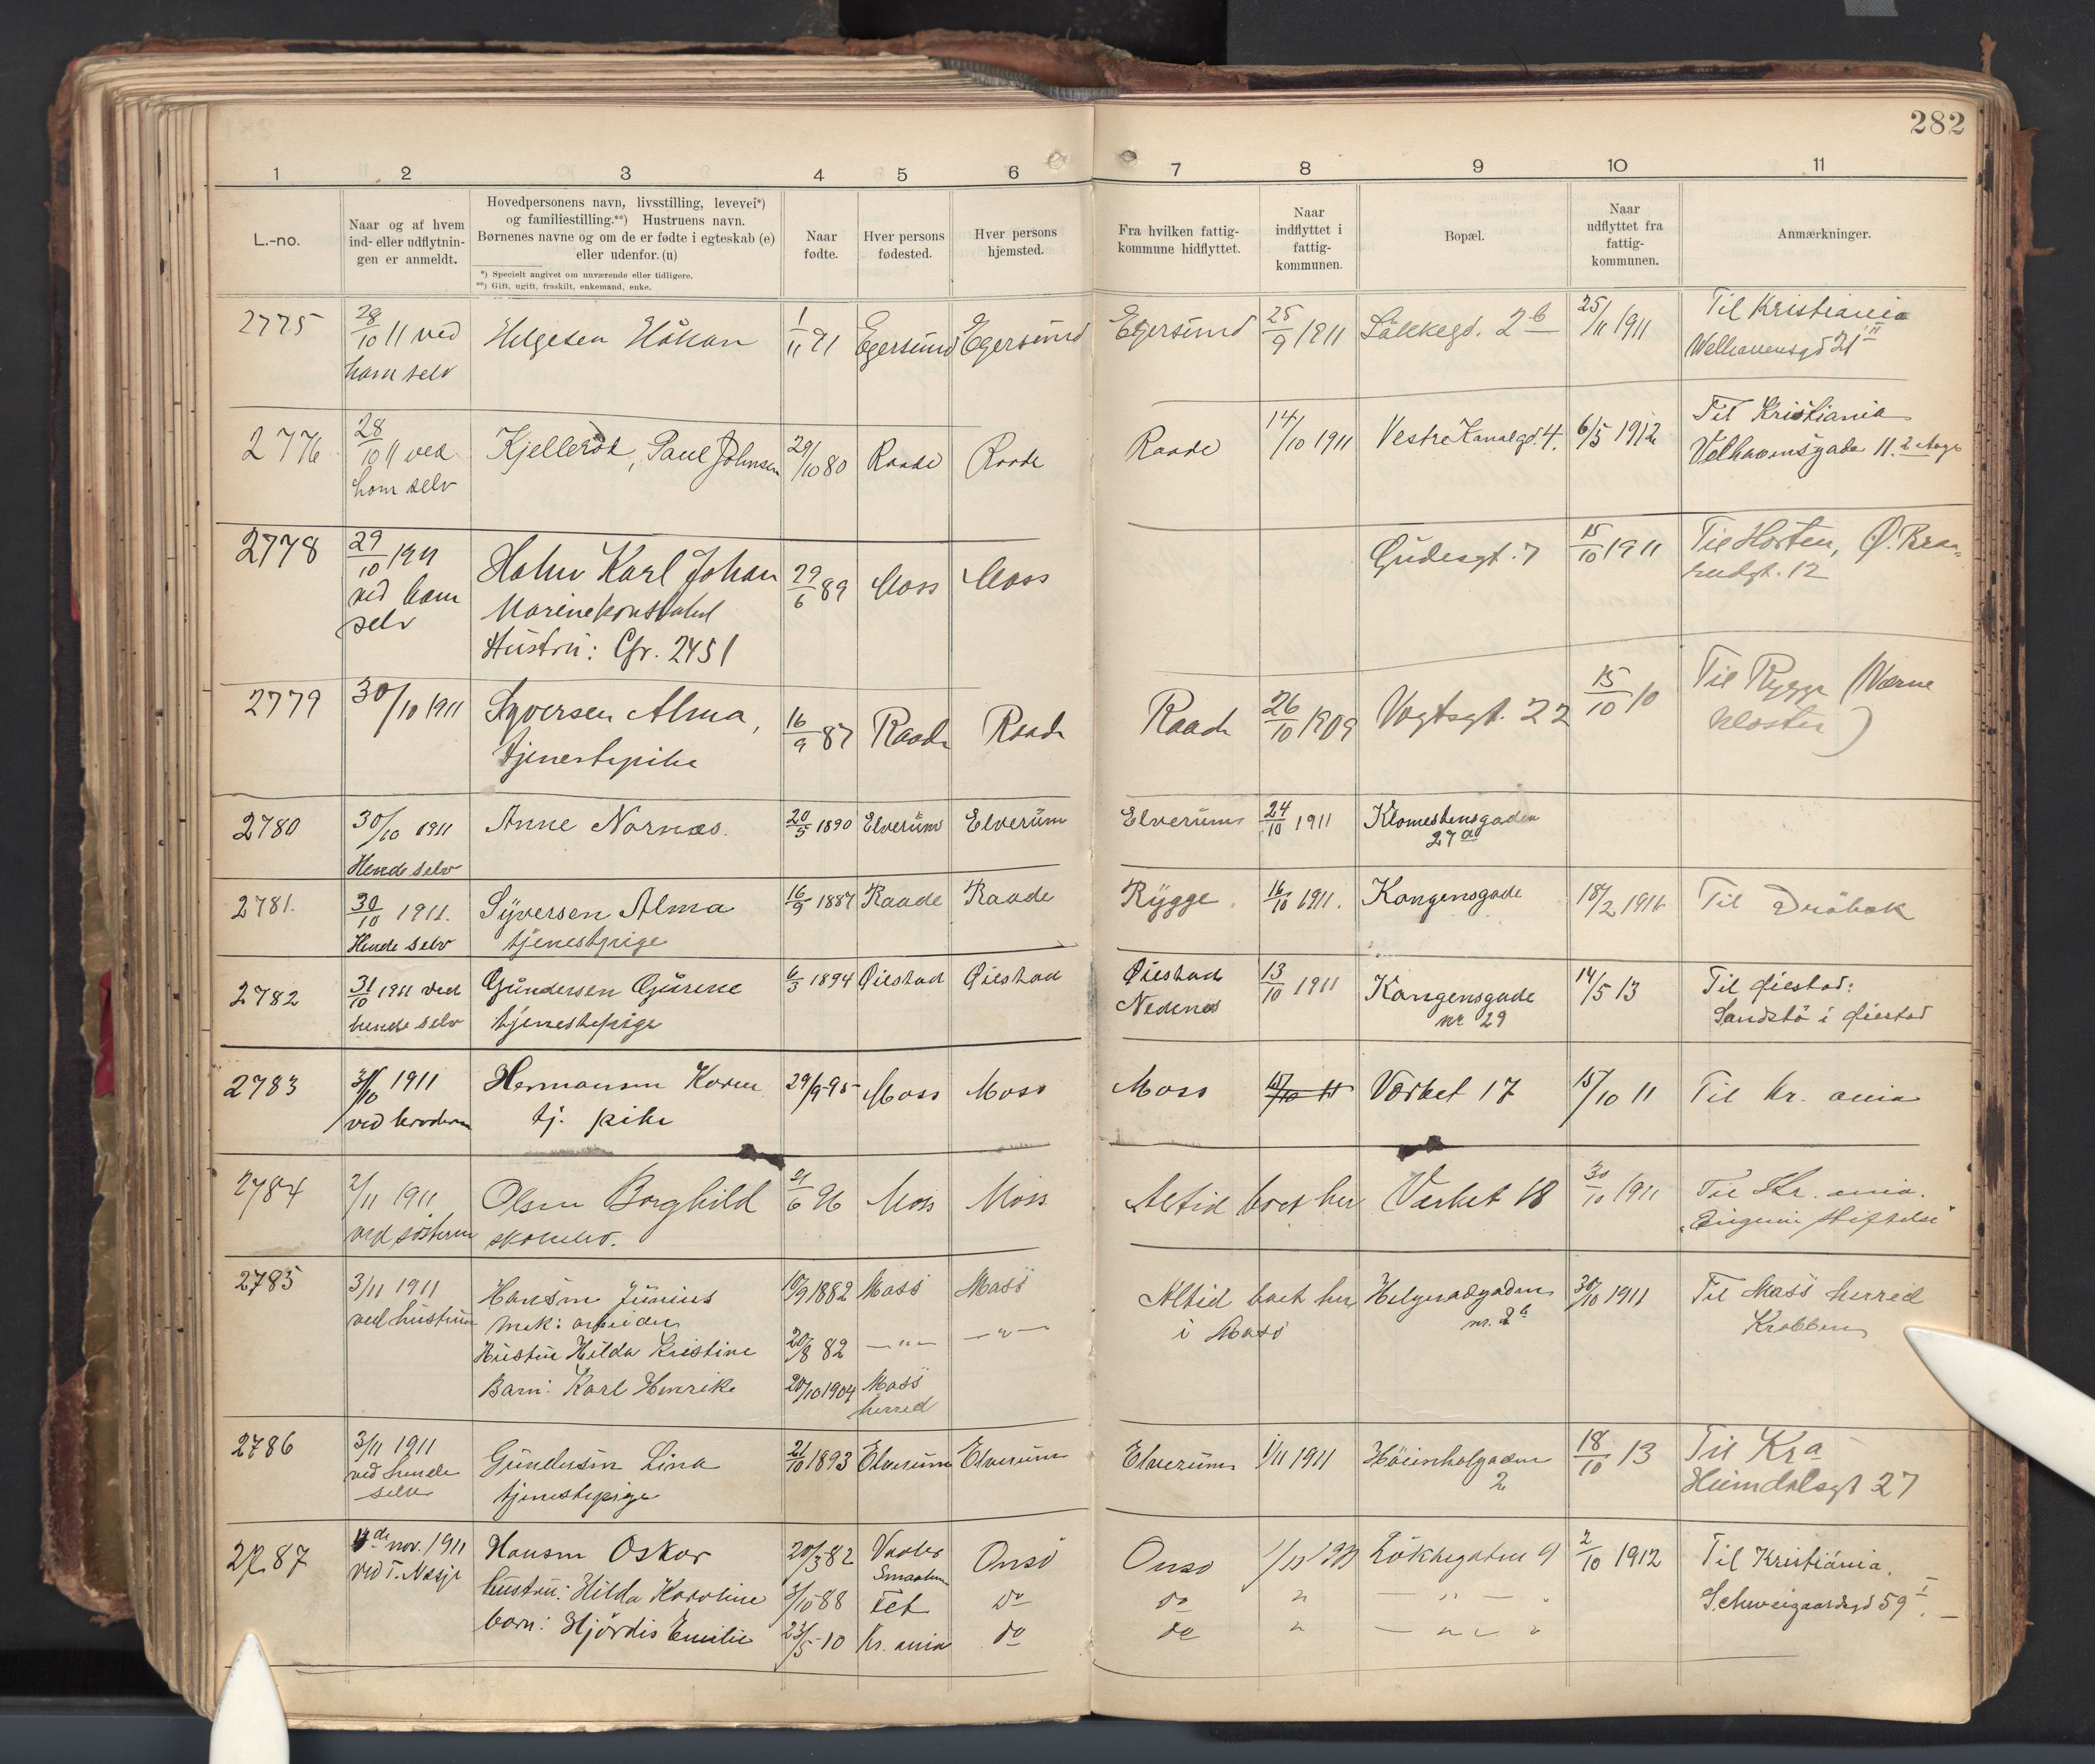 282
1 2 3 4 5 6 7 8 9 10 11
L.-no.
Naar og af hvem
ind- eller udflytnin-
gen er anmeldt.
Hovedpersonens navn, livsstilling, levevei*)
og familiestilling.**) Hustruens navn.
Børnenes navne og om de er fødte i egteskab (e)
eller udenfor. (u)
*) Specielt angivet om nuværende eller tidligere.
**) Gift, ugift, fraskilt, enkemand, enke.
Naar
fødte.
Hver persons
fødested.
Hver persons
hjemsted.
Fra hvilken fattig-
kommune hidflyttet.
Naar
indflyttet i
fattig-
kommunen.
Bopæl.
Naar
udflyttet fra
fattig-
kommunen.
Anmærkninger.
2775
28/10 11 ved
ham selv
Helgesen Håkan
1/11 71
Egersund
Egersund
Egersund
25/9 1911
Løkkegd. 2b
25/11 1911
Til Kristiania
Welhavensgd 21 III
2776
28/10 11 ved
ham selv
Kjelleröd, Paul Johnsen
29/10 80
Raade
Raade
Raade
14/10 1911
Vestre Kanalgd. 4.
6/5 1912
Til Kristiania
Velhavensgade 11. 2 etage
2778
29/10 1911
ved ham
selv
Holm Karl Johan
Marinekonstabel
Hustru: Cfr. 2451
29/6 89
Moss
Moss
Gudesgt. 7
15/10 1911
Til Horten, Ø. Bra-
rudgt. 12
2779
30/10 1911
Syversen Alma,
tjenestepike
16/9 87
Raade
Raade
Raade
26/10 1909
Vogtsgt. 22
15/10 10
Til Rygge (Værne
Kloster)
2780
30/10 1911
Hende selv
Anne Nornæs.
20/5 1890
Elverum
Elverum
Elverum
24/10 1911
Klomestensgaden
27 a
2781.
30/10 1911.
Hende selv
Syversen Alma
tjenestpige
16/9 1887
Raade
Raade
Rygge
16/10 1911.
Kongensgade
18/2 1916
Til Dröbak
2782
31/10 1911 ved
hende selv
Gundersen Gurine
tjenestepige
6/5 1894
Øiestad
Øiestad
Øiestad
Nedenæs
13/10 1911
Kongensgade
nr 29
14/5 13
Til Øiestad:
Sandstö i Øiestad
2783
31/10 1911
ved broderen
Hermansen Karen
tj. pike
29/9-95
Moss
Moss
Moss
15/10 11
Værket 17
15/10 11
Til Kr. ania
2784
2/11 1911
ved søsteren
Olsen Borghild
skoleelev.
21/6 96
Moss
Moss
Altid boet her
Værket 18
30/10 1911
Til Kr. ania.
"Eugenie stiftelse"
2785
3/11 1911
ved hustruen
Hansen Junius
mek: arbeider
Hustru Hilda Kristine
Barn: Karl Henrik
10/9 1882
20/8 82
20/10 1904
Moss
— " —
Moss
herred
Moss
— " —
Altid boet her
i Moss
Helgerødgaden
nr. 2 b
30/10 1911
Til Moss herred
Krabben
2786
3/11 1911
ved hende
selv
Gundersen Lina
tjenestepige
21/10 1893
Elverum
Elverum
Elverum
1/11 1911
Høienholgaden
2
18/10 13
Til Kra
Heimdalsgt 27
2787
4de nov. 1911
ved T. Næsje
Hansen Oskar
hustru: Hilda Karoline
barn: Hjördis Emilie
20/3 82
3/10-88
23/5-10
Vaaler
Smaalen
Fet
Kr. ania
Onsø
do
do
Onsø
do
do
Løkkegaten 9
2/10 1912
Til Kristiania.
Schweigaardsgd 59 I.